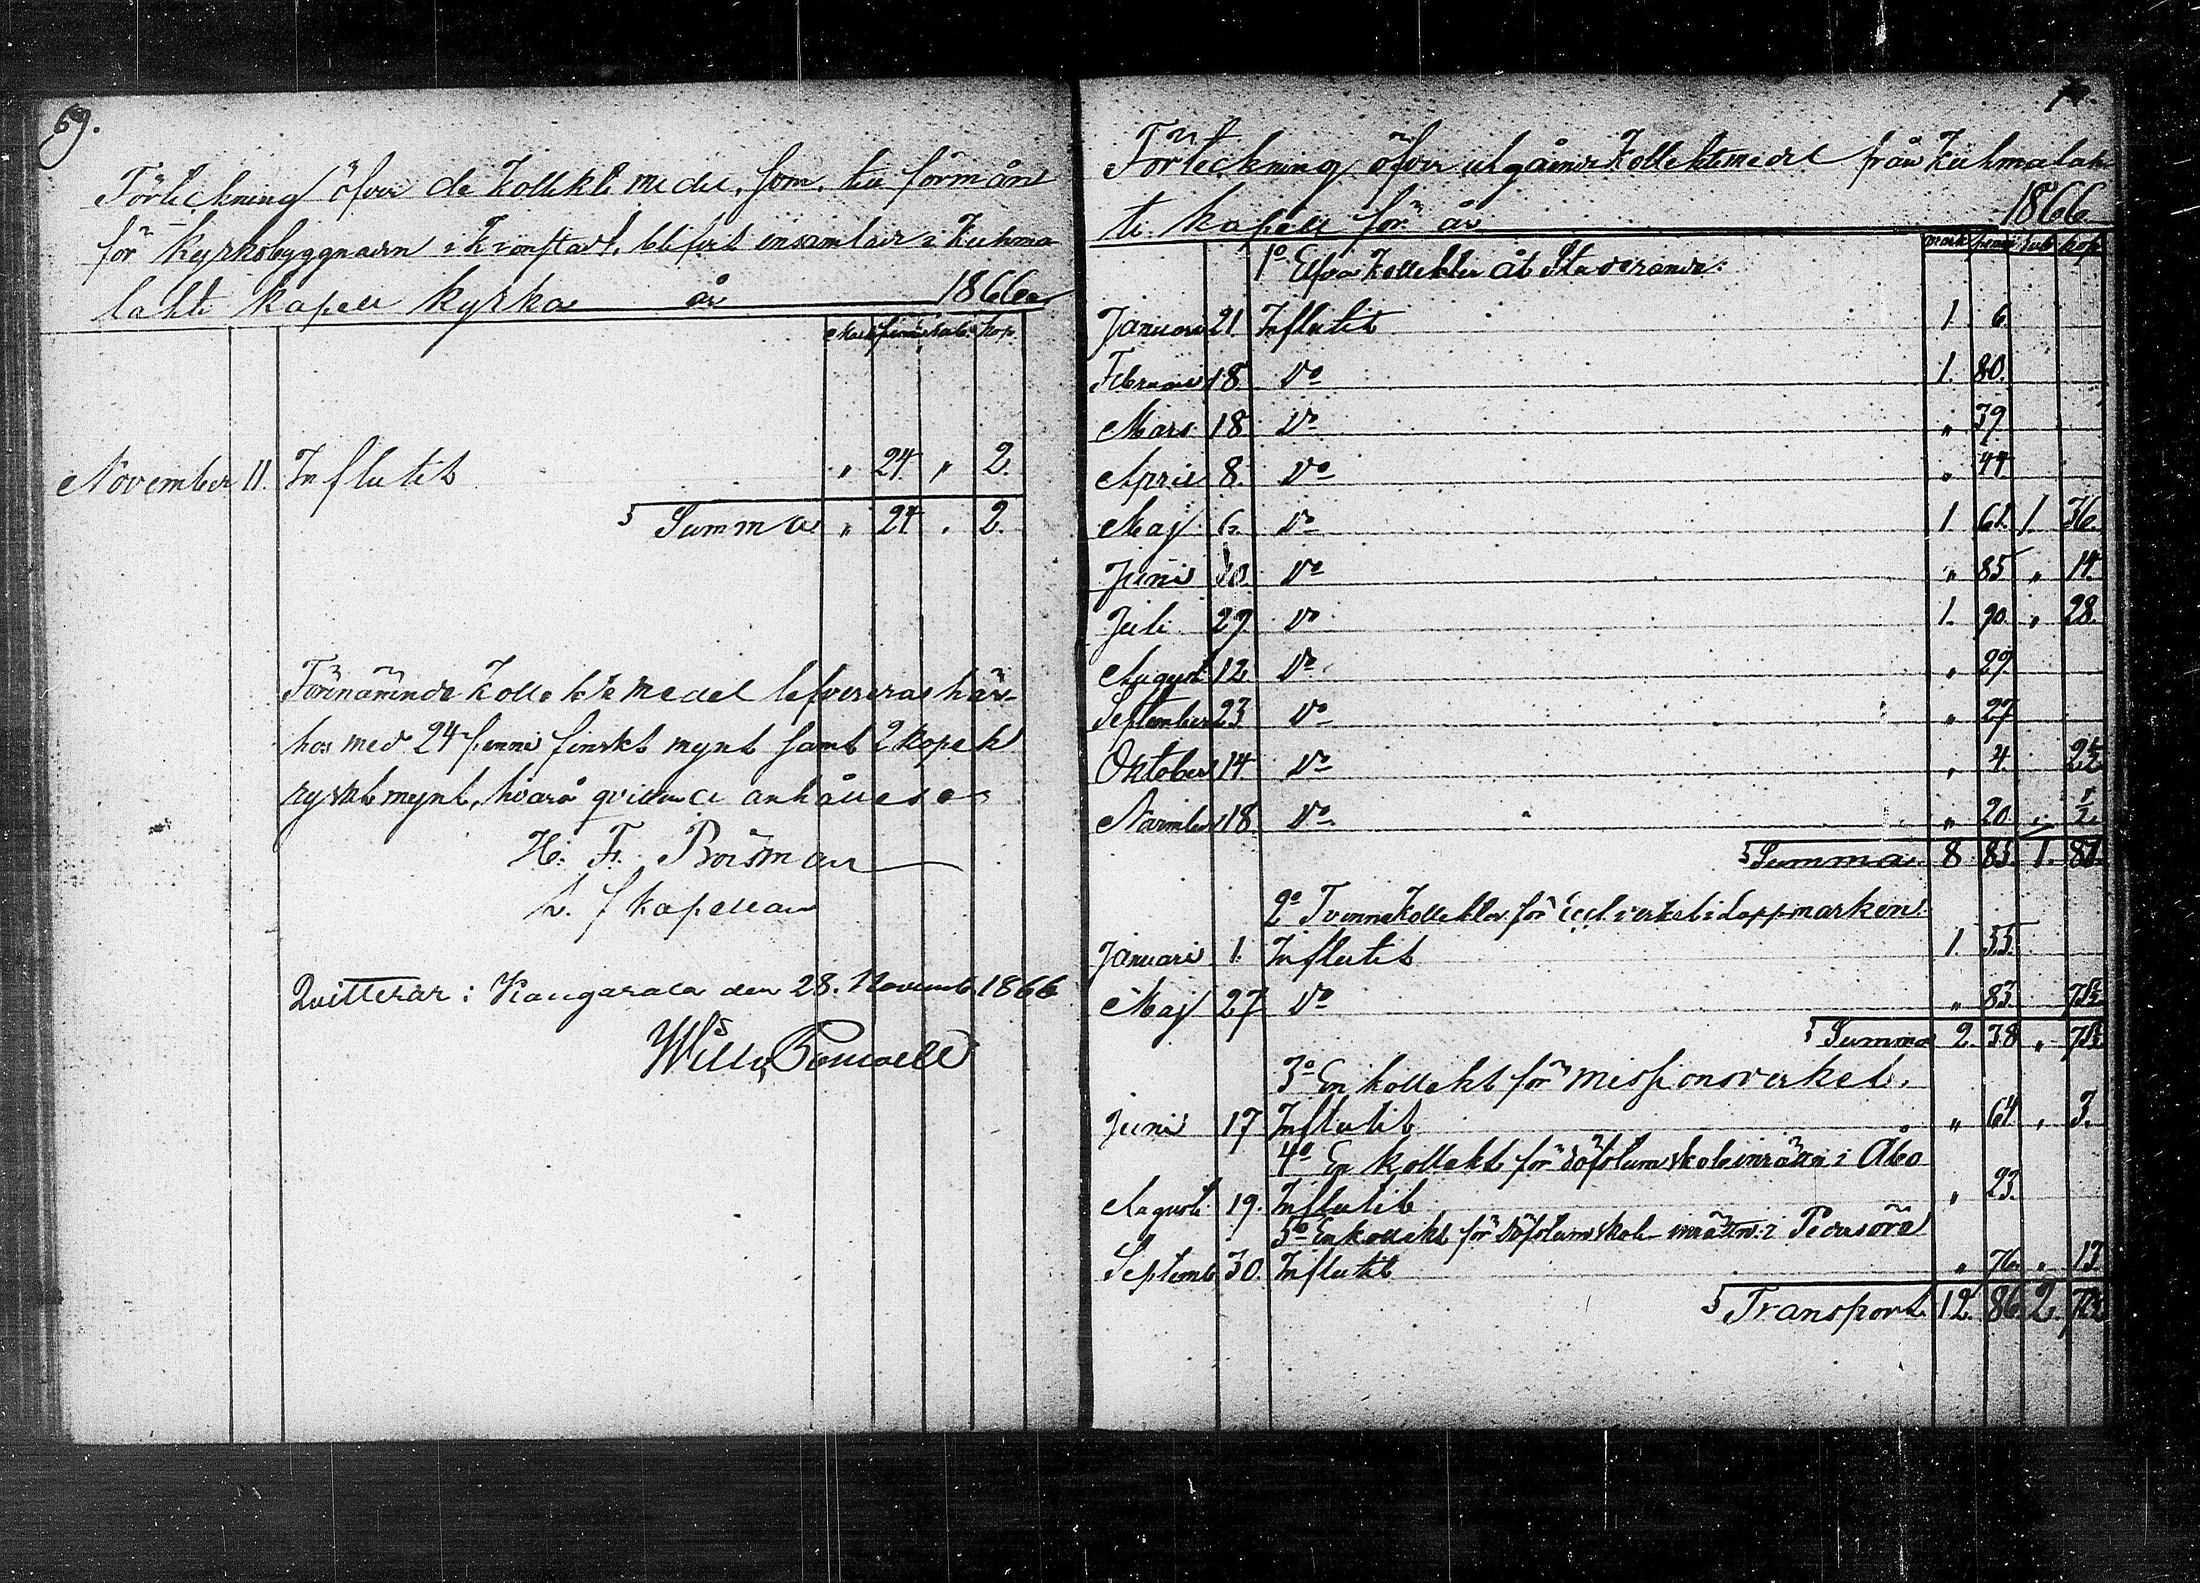 69.
Förteckning öfver de Kollektmedel, som till förmån
för Kyrkobyggnaden i Kronstadt, blifvit insamlade i Kuhma-
lahti Kapell Kyrka år 1866
mark penni rub. kop.
November 11. Influtit " 24. " 2.
Summa " 24 . 2.
Förenämnde Kollektmedel lefvereras här-
hos med 24 penni finskt mynt samt 2 kopek
ryskt mynt, hvarå qvittence anhålles
H. F. Boisman
t. f Kapellan
Qvitterar: Kangasala den 28. Novemb. 1866
70.
Förteckning öfver utgående Kollektmedel från Kuhmalah-
ti Kapell för år 1866
mark penni rub kop
1º Elfva Kollekter åt Staderande:
Januari 21. Influtit 1 6.
Februari 18 Dº 1. 80.
Mars 18 Dº " 39
April 8. Dº " 44.
Maj 6. Dº 1. 61. 1. 36.
Juni 10. Dº " 85 " 14.
Juli 29 Dº 1. 90. " 28.
August 12 Dº " 29.
September 23 Dº " 27
Oktober 14 Dº " 4. 2½
November 18. Dº " 20 " ½
Summa 8 85 1. 81.
2º Tvenne Kollekter för Eccl. verket i Lappmarken.
Januari 1. Influtit 1. 55.
Maj 27 Dº " 83.
Summa 2. 38 "
3º En kollekt för missionsverket.
Juni 17 Influtit " 64 " 3.
4º En kollekt för döfstumskoleinrättn i Åbo
August 19. Influtit " 23.
5º En kollekt för döfstumskole-inrättn: i Pedersöre
Septemb 30. Influtit " 76 " 13
Transport 12. 86. 2.